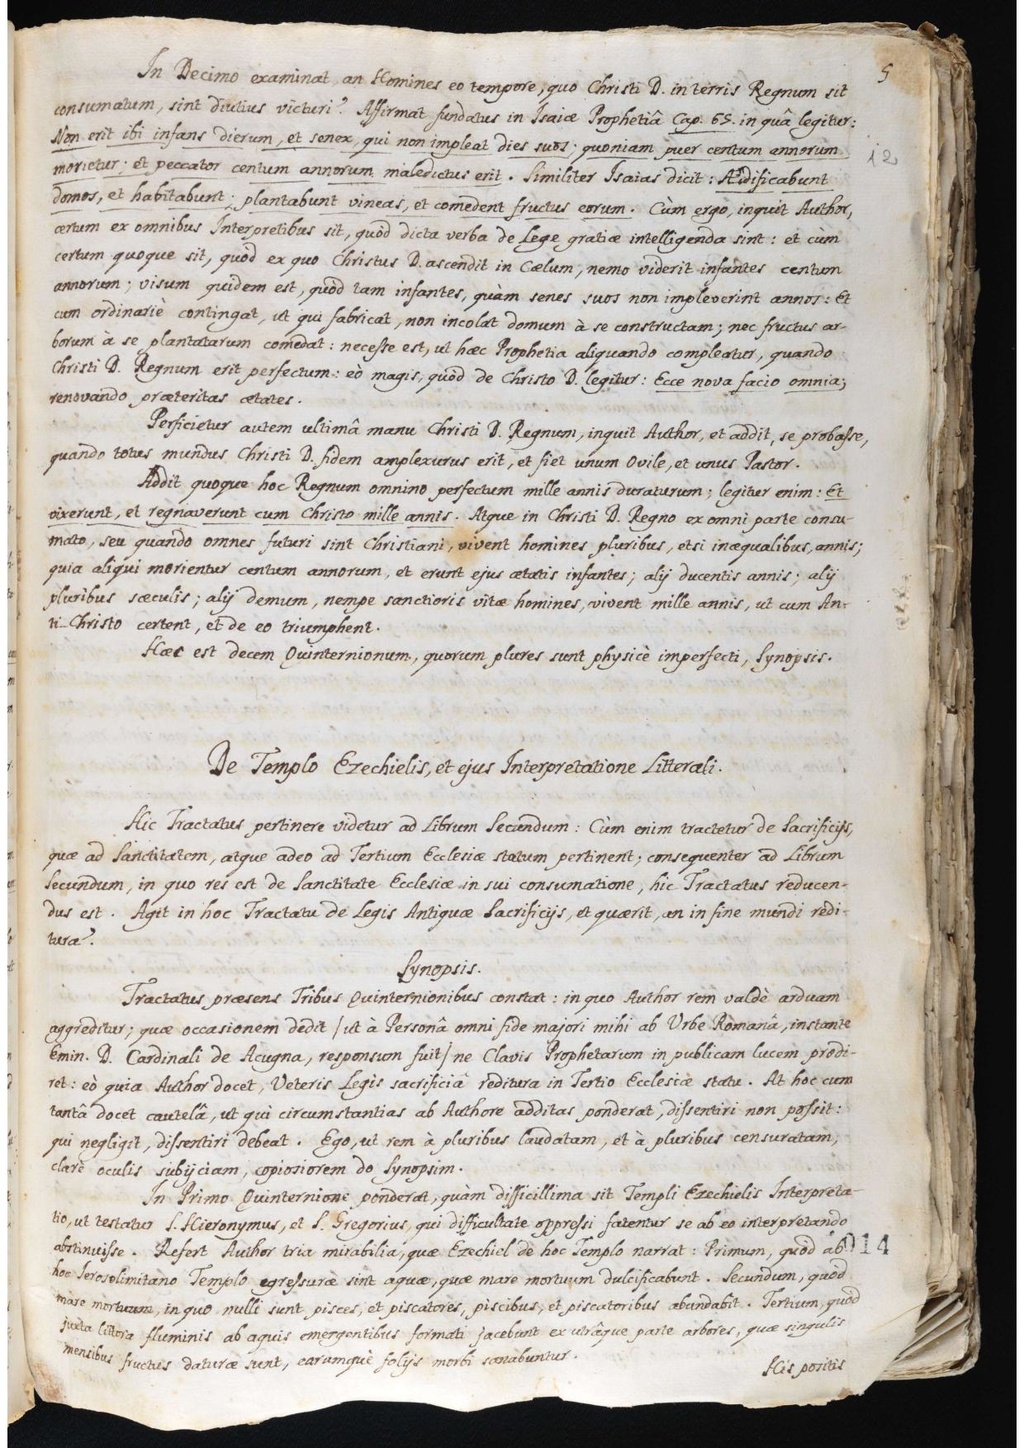 5
In Decimo examinat, an Homines eo tempore, quo Christi D. in terris Regnum sit
consumatum, sint diutius victuri? Affirmat fundatus in Isaiæ Prophetiâ Cap. 65. in quâ legitur:
Non erit ibi infans dierum, et senex, qui non impleat dies suos; quoniam puer centum annorum
12
morietur; et peccator centum annorum maledictus erit. Similiter Isaias dicit: Ædificabunt
domos, et habitabunt; plantabunt vineas, et comedent fructus eorum. Cùm ergo, inquit Author,
certum ex omnibus Interpretibus sit, quòd dicta verba de Lege gratiæ intelligenda sint: et cùm
certum quoque sit, quòd ex quo Christus D. ascendit in Cælum, nemo viderit infantes centum
annorum; visum quidem est, quòd tam infantes, quàm senes suos non impleverint annos: Et
cum ordinariè contingat, ut qui fabricat, non incolat domum à se constructam; nec fructus ar-
borum à se plantatarum comedat: necesse est, ut hæc Prophetia aliquando compleatur, quando
Christi D. Regnum erit perfectum: eò magis, quòd de Christo D. legitur: Ecce nova facio omnia;
renovando præteritas ætates.
Perficietur autem ultimâ manu Christi D. Regnum, inquit Author, et addit, se probasse,
quando totus mundus Christi D. fidem amplexurus erit, et fiet unum Ovile, et unus Pastor.
Addit quoque hoc Regnum omnino perfectum mille annis duraturum; legitur enim: Et
vixerunt, et regnaverunt cum Christo mille annis. Atque in Christi D. Regno ex omni parte consu-
mato, seu quando omnes futuri sint Christiani, vivent homines pluribus, etsi inæqualibus, annis;
quia aliqui morientur centum annorum, et erunt ejus ætatis infantes; alij ducentis annis; alij
pluribus sæculis; alij demum, nempe sanctioris vitæ homines, vivent mille annis, ut cum An-
ti-Christo certent, et de eo triumphent.
Hæc est decem Quinternionum, quorum plures sunt physicè imperfecti, Synopsis.
De Templo Ezechielis, et ejus Interpretatione Litterali.
Hic Tractatus pertinere videtur ad Librum Secundum: Cùm enim tractetur de Sacrificijs,
quæ ad Sanctitatem, atque adeo ad Tertium Ecclesiæ statum pertinent; consequenter ad Librum
Secundum, in quo res est de Sanctitate Ecclesiæ in sui consumatione, hic Tractatus reducen-
dus est. Agit in hoc Tractatu de Legis Antiquæ Sacrificijs, et quærit, an in fine mundi redi-
tura?
Synopsis.
Tractatus præsens Tribus Quinternionibus constat: in quo Author rem valdè arduam
aggreditur; quæ occasionem dedit / ut à Personâ omni fide majori mihi ab Urbe Romanâ, instante
Emin. D. Cardinali de Acugna, responsum fuit / ne Clavis Prophetarum in publicam lucem prodi-
ret: eò quia Author docet, Veteris Legis sacrificia reditura in Tertio Ecclesiæ statu. At hoc cum
tantâ docet cautelâ, ut qui circumstantias ab Authore additas ponderat, dissentiri non possit:
qui negligit, dissentiri debeat. Ego, ut rem à pluribus laudatam, et à pluribus censuratam,
clarè oculis subijciam, copiosiorem do Synopsim.
In Primo Quinternione ponderat, quàm difficillima sit Templi Ezechielis Interpreta-
tio, ut testatur S. Hieronymus, et S. Gregorius, qui difficultate oppressi fatentur se ab eo interpretando
abstinuisse. Refert Author tria mirabilia, quæ Ezechiel de hoc Templo narrat: Primum, quòd ab
014
hoc Ierosolimitano Templo egressuræ sint aquæ, quæ mare mortuum dulcificabunt. Secundum, quòd
mare mortuum, in quo nulli sunt pisces, et piscatores, piscibus, et piscatoribus abundabit. Tertium, quòd
juxta littora fluminis ab aquis emergentibus formati jacebunt ex utrâque parte arbores, quæ singulis
mensibus fructus daturæ sunt, earumquè folijs morbi sanabuntur.
His positis